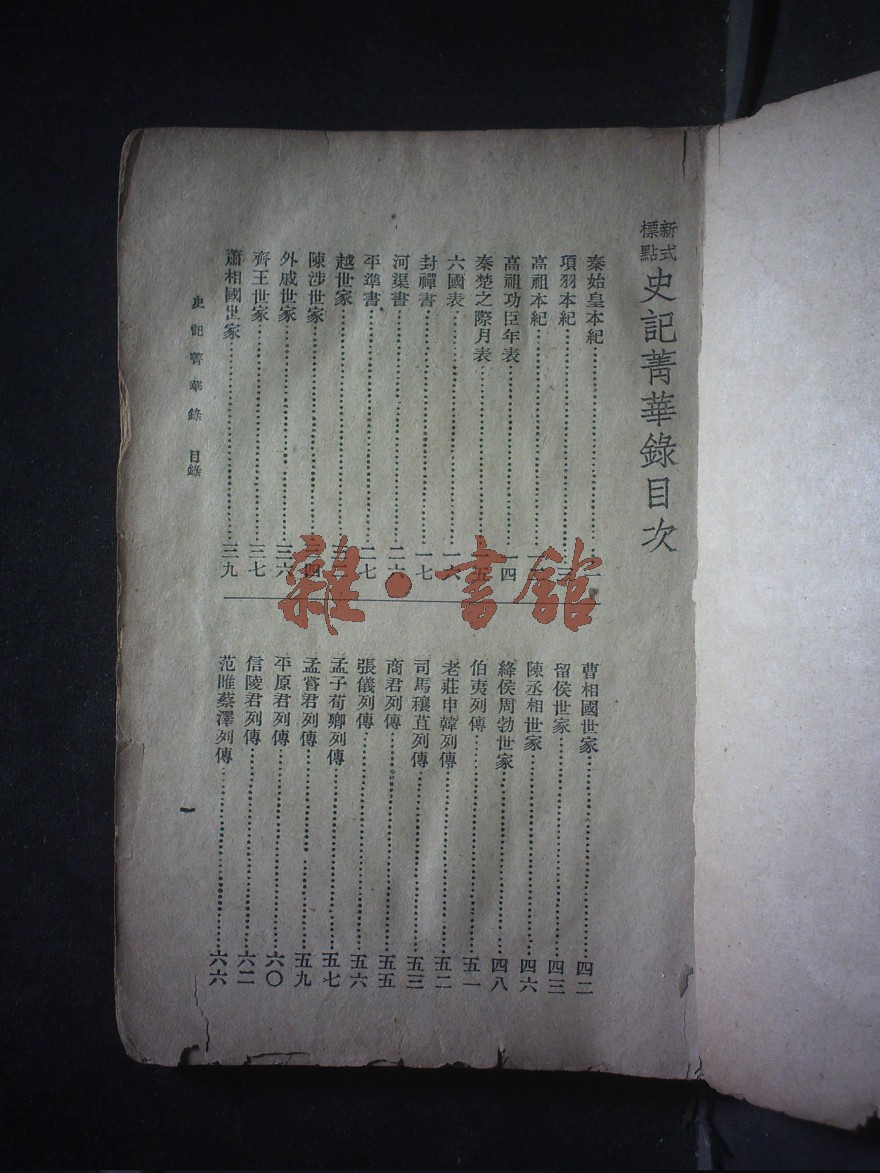 新式標點 史記菁華錄目次
秦始皇本紀……一
項羽本紀……三
高祖本紀……
高祖功臣年表……一四
秦楚之際月表……一五
六國表……一六
封禪書……一七
河渠書……二六
平準書……二七
越世家……三二
陳涉世家……三四
外戚世家……三六
齊王世家……三七
蕭相國世家……三九
曹相國世家……四二
留侯世家……四三
陳丞相世家……四六
絳侯周勃世家……四八
伯夷列傳……五一
老莊申韓列傳……五二
司馬穰苴列傳……五三
商君列傳……五五
張儀列傳……五六
孟子荀卿列傳……五七
孟嘗君列傳……五九
平原君列傳……六〇
信陵君列傳……六二
范睢蔡澤列傳……六六
史記菁華錄 目錄
一
雜·書館